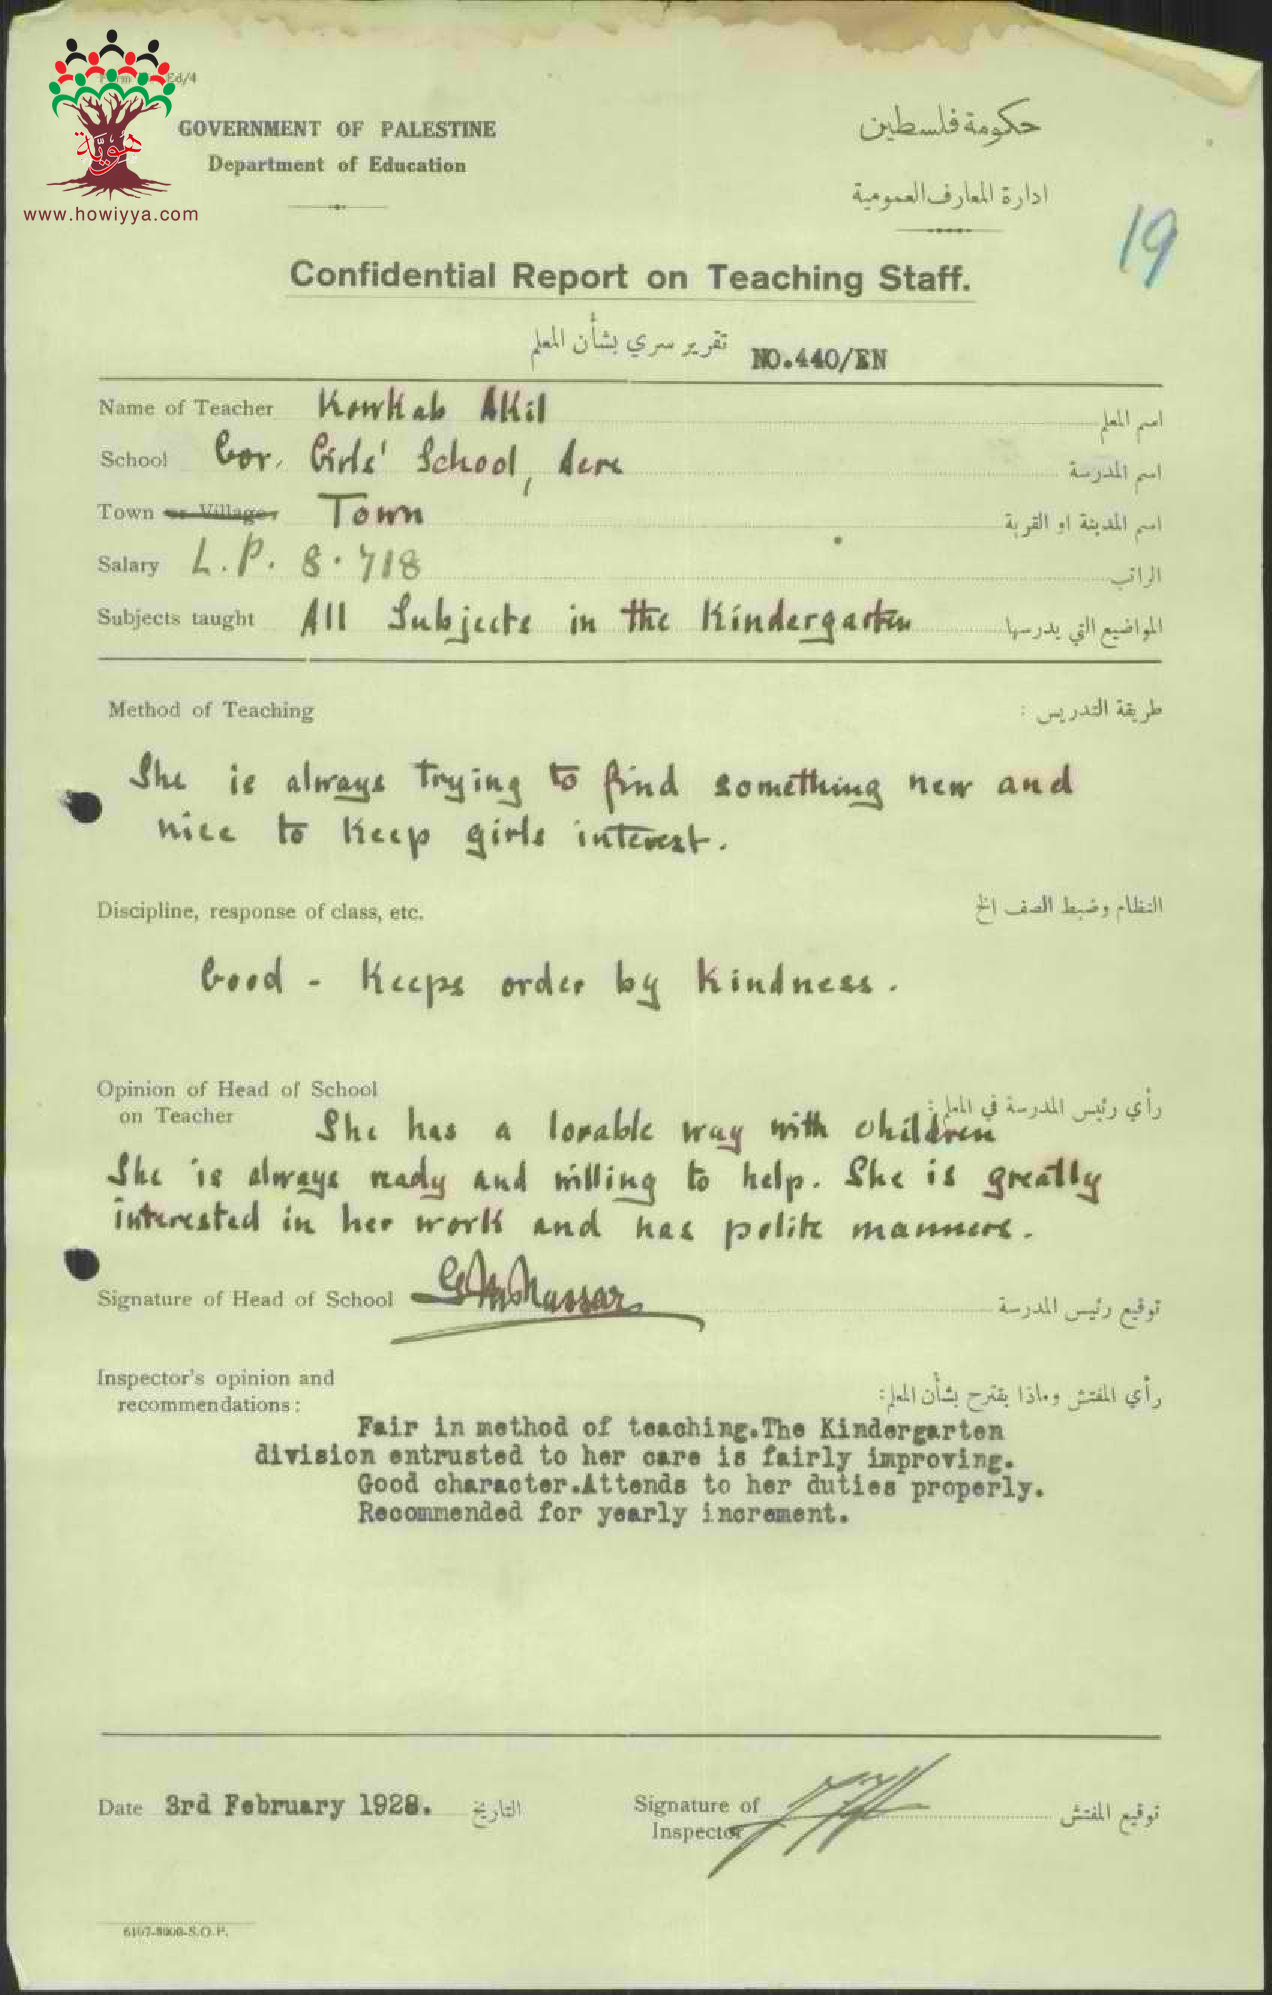 Ed/4
هويّة
www.howiyya.com
GOVERNMENT OF PALESTINE
Department of Education
حكومة فلسطين
ادارة المعارف العمومية
19
Confidential Report on Teaching Staff.
تقرير سري بشأن المعلم
NO.440/EN
Name of Teacher Kowkab Akil اسم المعلم
School Gov. Girls' School, Acre اسم المدرسة
Town or Village Town اسم المدينة او القرية
Salary L.P. 8.718 الراتب
Subjects taught All Subjects in the Kindergarten المواضيع التي يدرسها
Method of Teaching طريقة التدريس :
She is always trying to find something new and
nice to keep girls interest.
Discipline, response of class, etc. النظام وضبط الصف الخ
Good - Keeps order by kindness.
Opinion of Head of School
on Teacher رأي رئيس المدرسة في المعلم:
She has a lovable way with children
She is always ready and willing to help. She is greatly
interested in her work and has polite manners.
Signature of Head of School Nassar توقيع رئيس المدرسة
Inspector's opinion and
recommendations: رأي المفتش وماذا يقترح بشأن المعلم:
Fair in method of teaching.The Kindergarten
division entrusted to her care is fairly improving.
Good character.Attends to her duties properly.
Recommended for yearly increment.
Date 3rd February 1928. التاريخ
Signature of
Inspector توقيع المفتش
6107-8000-S.O.P.